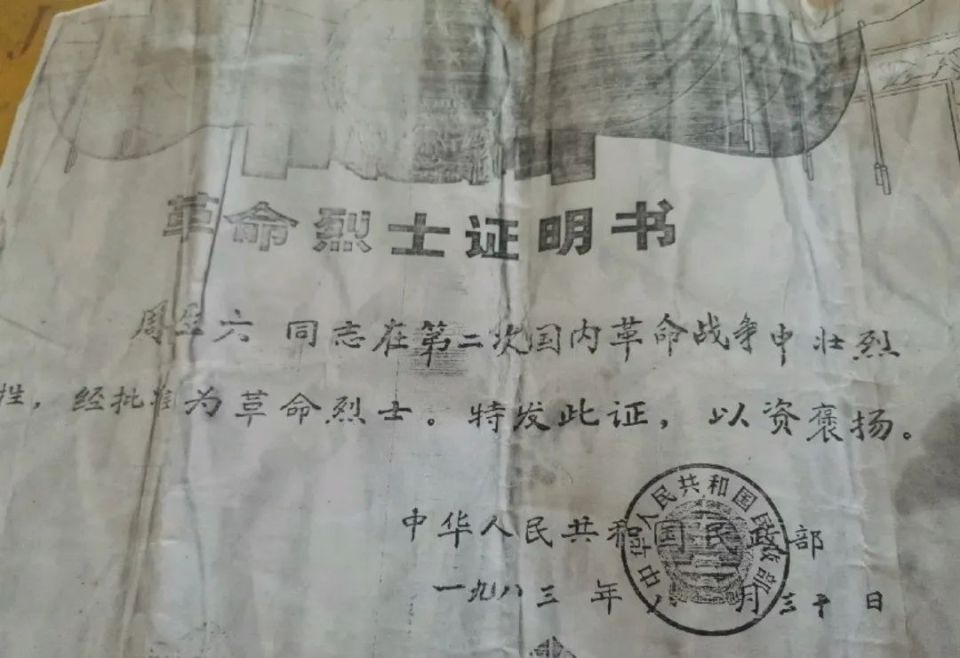 革命烈士证明书
周生六 同志在第二次国内革命战争中壮烈
牲，经批准为革命烈士。特发此证，以资褒扬。
中华人民共和国民政部
中华人民共和国民政部
一九八三年 月三十日